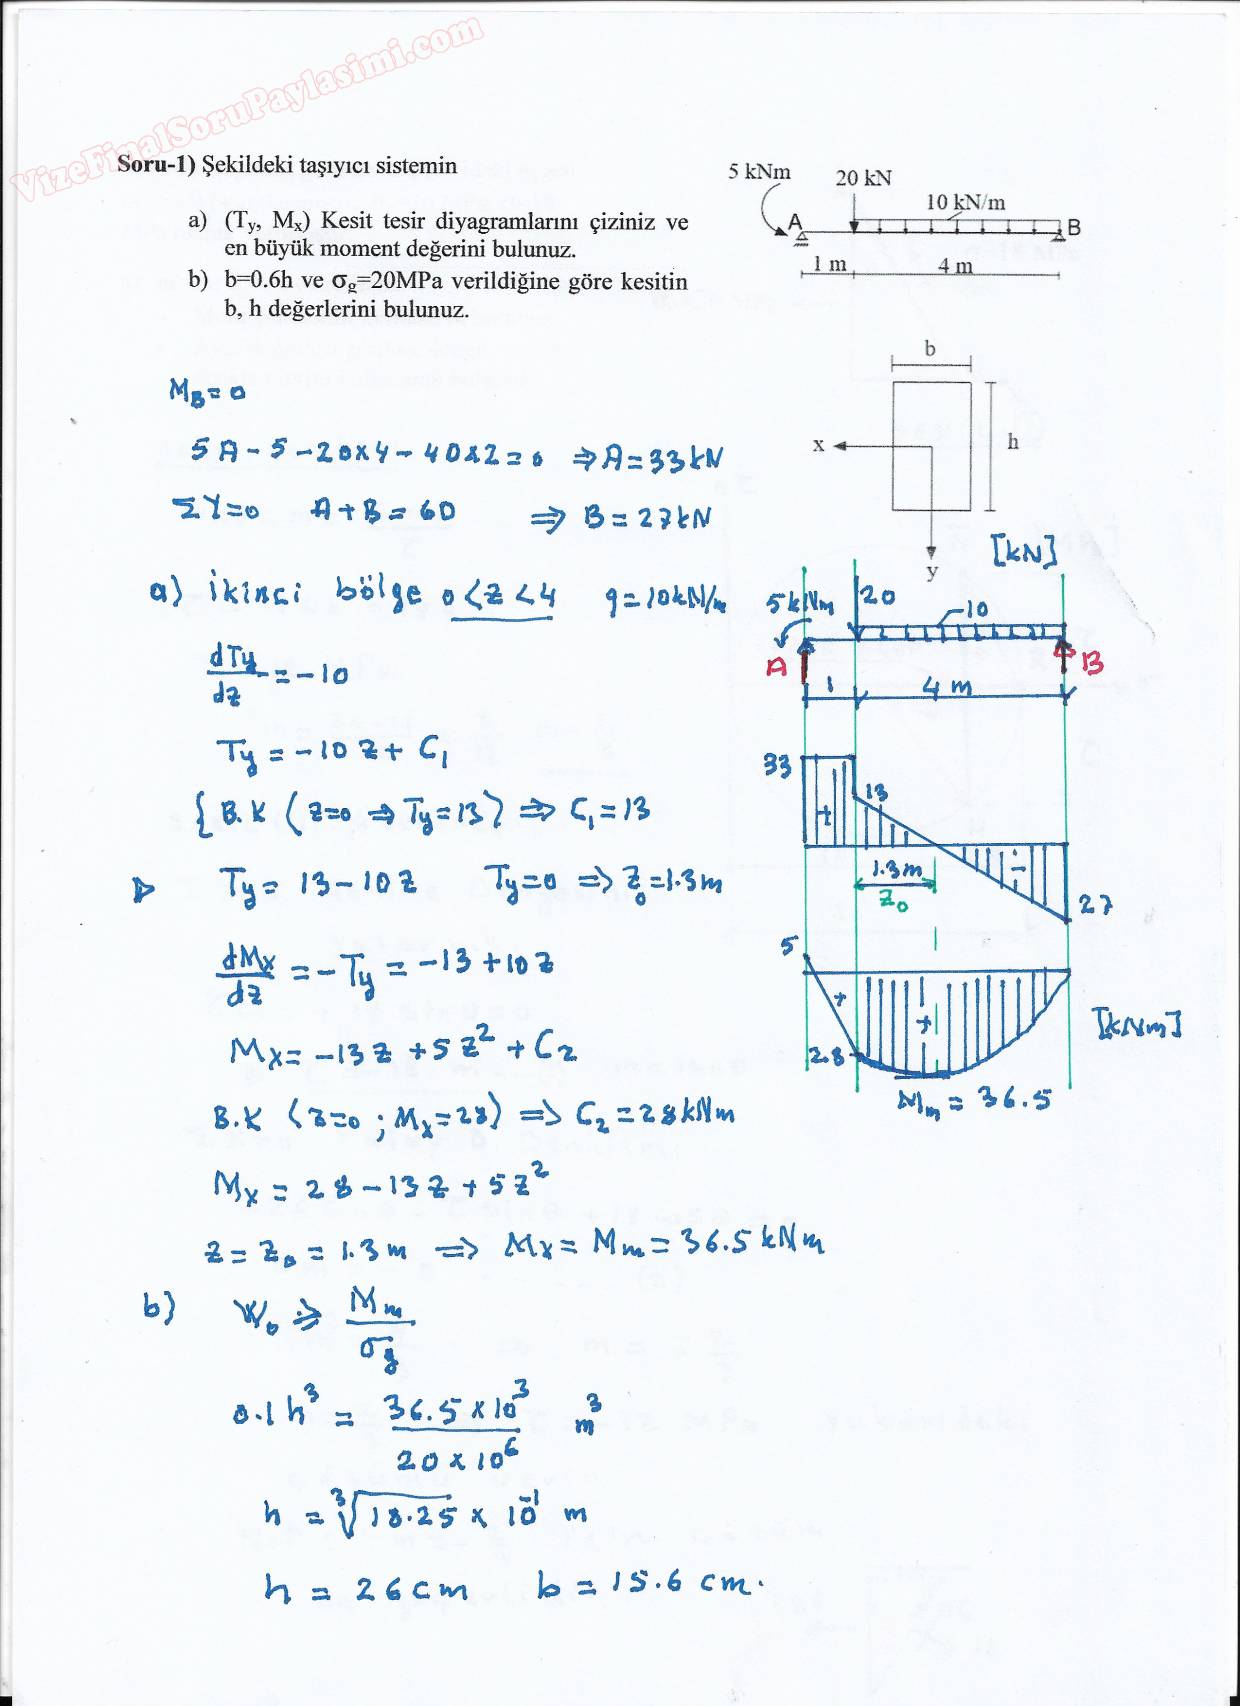 VizeFinalSoruPaylasimi.com
Soru-1) Şekildeki taşıyıcı sistemin
a) (Ty, Mx) Kesit tesir diyagramlarını çiziniz ve
en büyük moment değerini bulunuz.
b) b=0.6h ve σg=20MPa verildiğine göre kesitin
b, h değerlerini bulunuz.
5 kNm
20 kN
10 kN/m
A
B
1 m
4 m
b
h
x
y
MB=0
5A-5-20x4-40x2=0 ⇒A=33kN
ΣY=0 A+B=60 ⇒ B=27kN
a) ikinci bölge 0<z<4 q=10kN/m
dTy/dz = -10
Ty = -10z + C1
{B.K (z=0 ⇒ Ty=13) ⇒ C1=13
▷ Ty = 13-10z Ty=0 ⇒ z0=1.3m
dMx/dz = -Ty = -13+10z
Mx = -13z + 5z² + C2
B.K (z=0 ; Mx=28) ⇒ C2=28kNm
Mx = 28-13z+5z²
z = z0 = 1.3m ⇒ Mx = Mm = 36.5 kNm
[kN]
5kNm
20
10
A
B
1
4 m
33
13
+
1.3m
z0
-
27
5
+
+
[kNm]
2.8
Mm = 36.5
b) W0 ⩾ Mm/σg
0.1h³ = 36.5x10³/20x10⁶ m³
h = ³√18.25 x 10⁻¹ m
h = 26cm b = 15.6 cm.